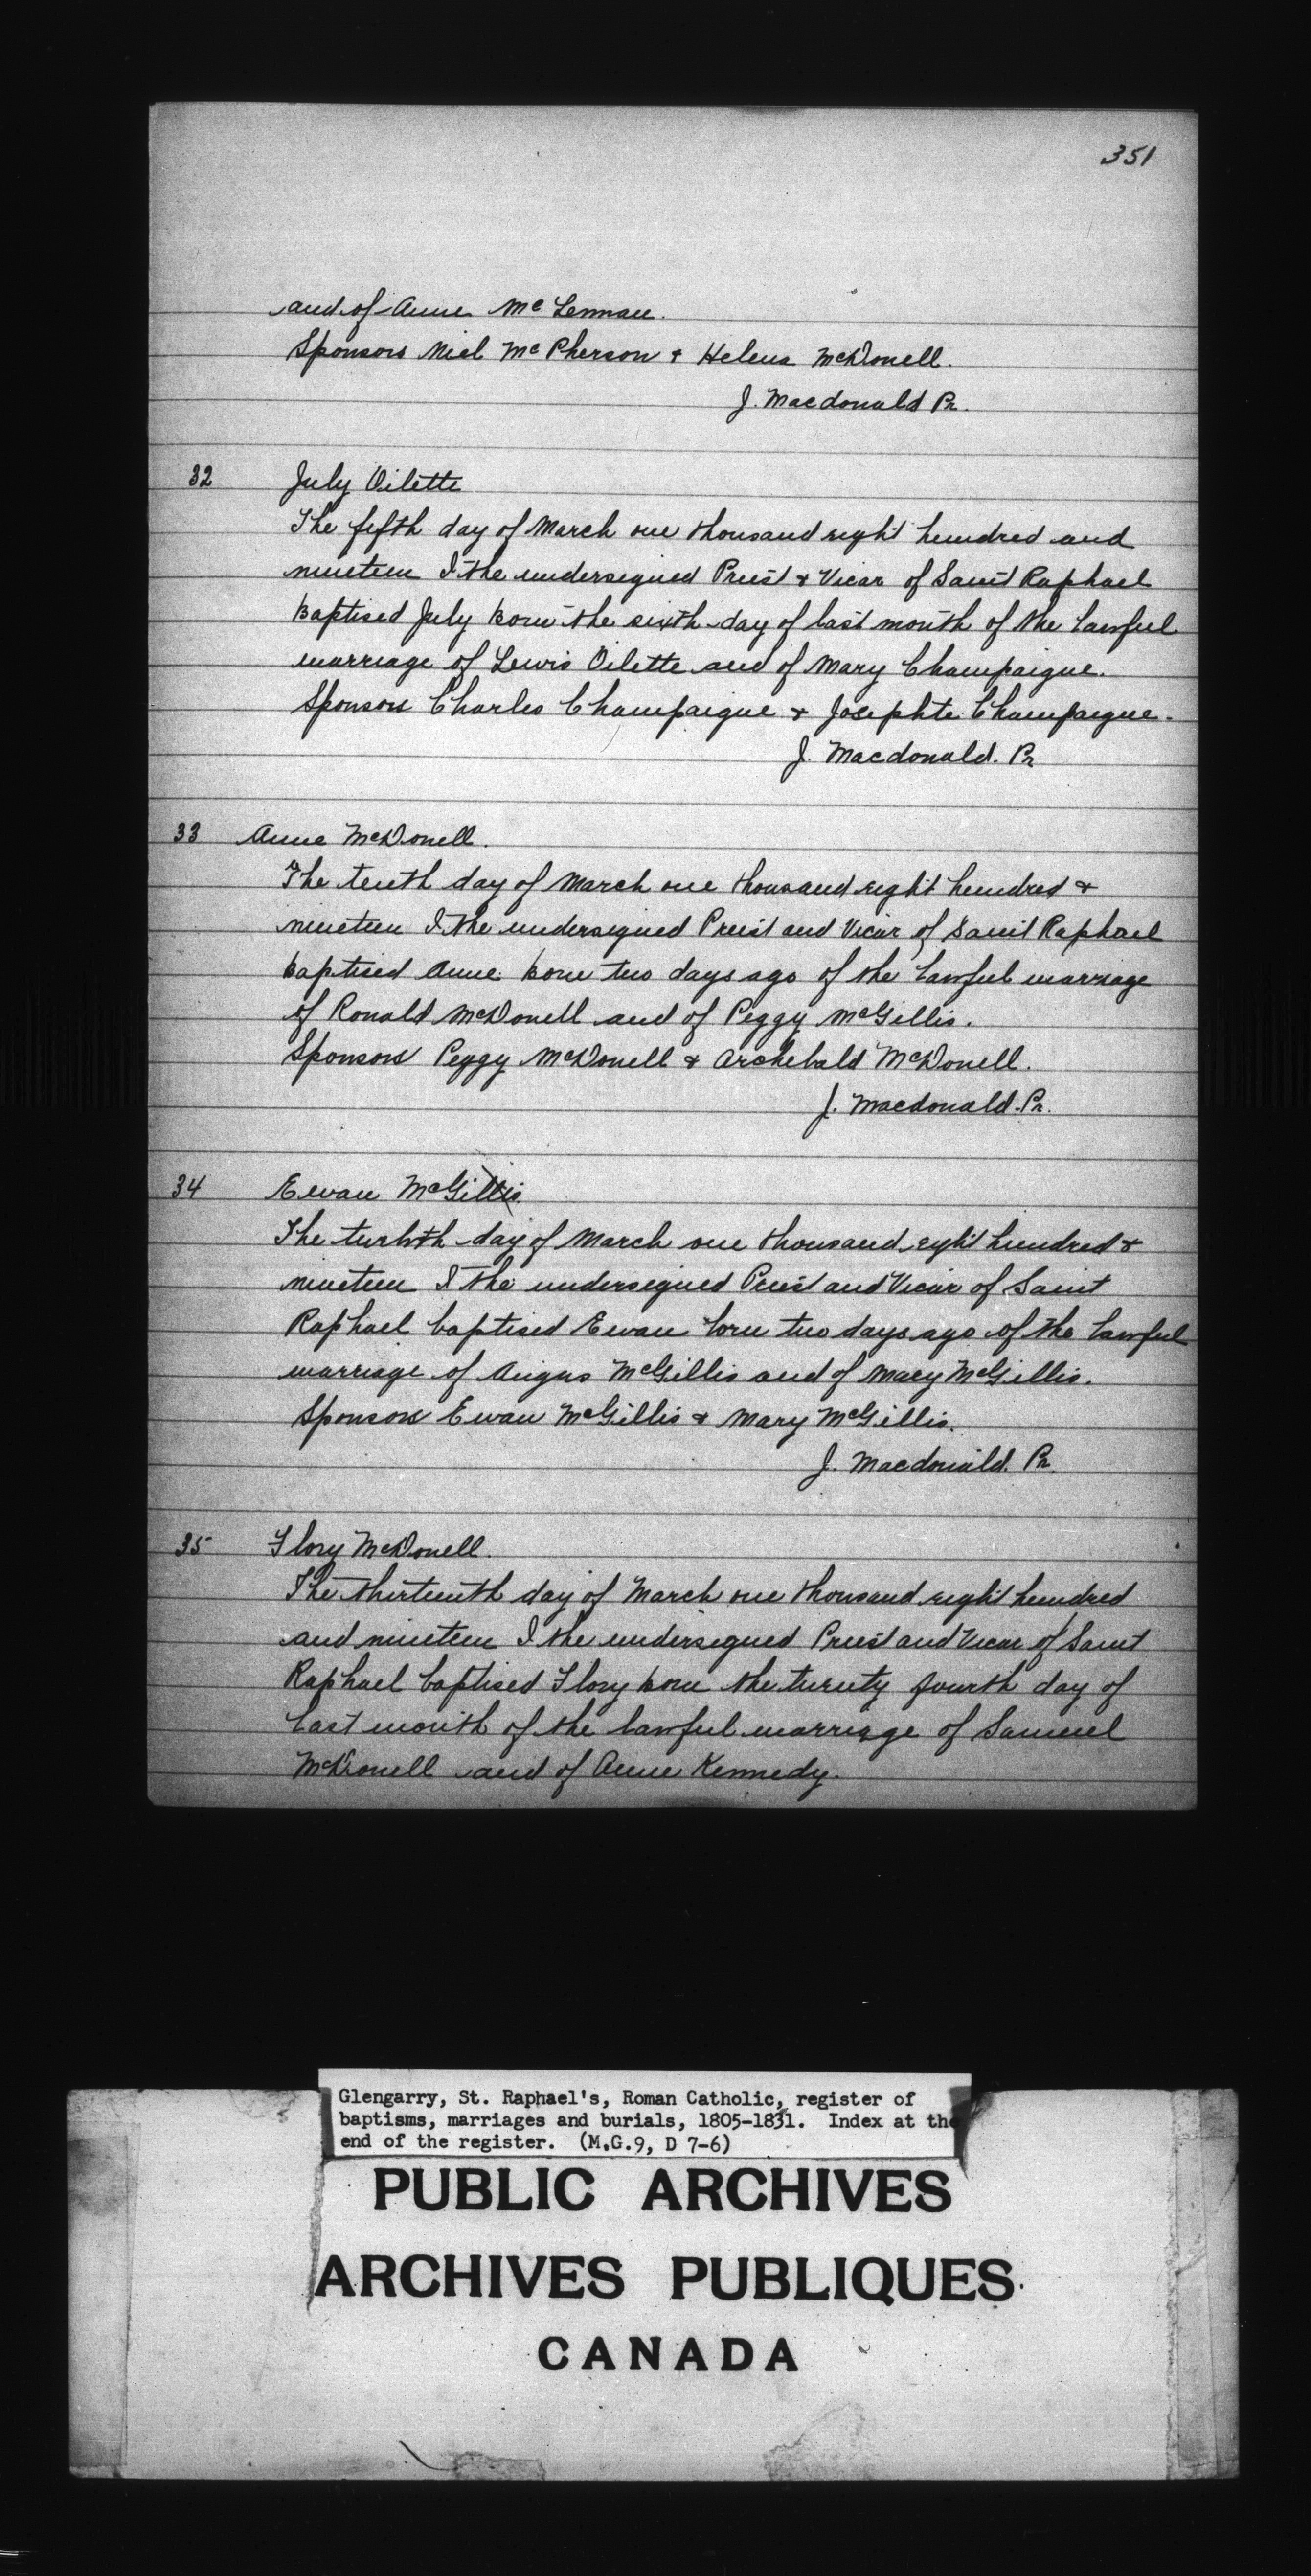 351
and of Anne McLennan.
Sponsors Niel McPherson & Helena McDonell.
J. Macdonald Pr.
32 July Oilette
The fifth day of March one thousand eight hundred and
nineteen I the undersigned Priest & Vicar of Saint Raphael
baptised July born the sixth day of last month of the lawful
marriage of Lewis Oilette and of Mary Champaigne.
Sponsors Charles Champaigne & Josephte Champaigne.
J. Macdonald. Pr
33 Anne McDonell.
The tenth day of March one thousand eight hundred &
nineteen I the undersigned Priest and Vicar of Saint Raphael
baptised Anne born two days ago of the lawful marriage
of Ronald McDonell and of Peggy McGillis.
Sponsors Peggy McDonell & Archebald McDonell.
J. Macdonald. Pr.
34 Ewan McGillis
The twelvth day of March one thousand eight hundred &
nineteen I the undersigned Priest and Vicar of Saint
Raphael baptised Ewan born two days ago of the lawful
marriage of Angus McGillis and of Mary McGillis.
Sponsors Ewan McGillis & Mary McGillis.
J. Macdonald. Pr.
35 Flory McDonell.
The thirteenth day of March one thousand eight hundred
and nineteen I the undersigned Priest and Vicar of Saint
Raphael baptised Flory born the twenty fourth day of
last month of the lawful marriage of Samuel
McDonell and of Anne Kennedy.
Glengarry, St. Raphael's, Roman Catholic, register of
baptisms, marriages and burials, 1805-1831. Index at the
end of the register. (M.G.9, D 7-6)
PUBLIC ARCHIVES
ARCHIVES PUBLIQUES
CANADA